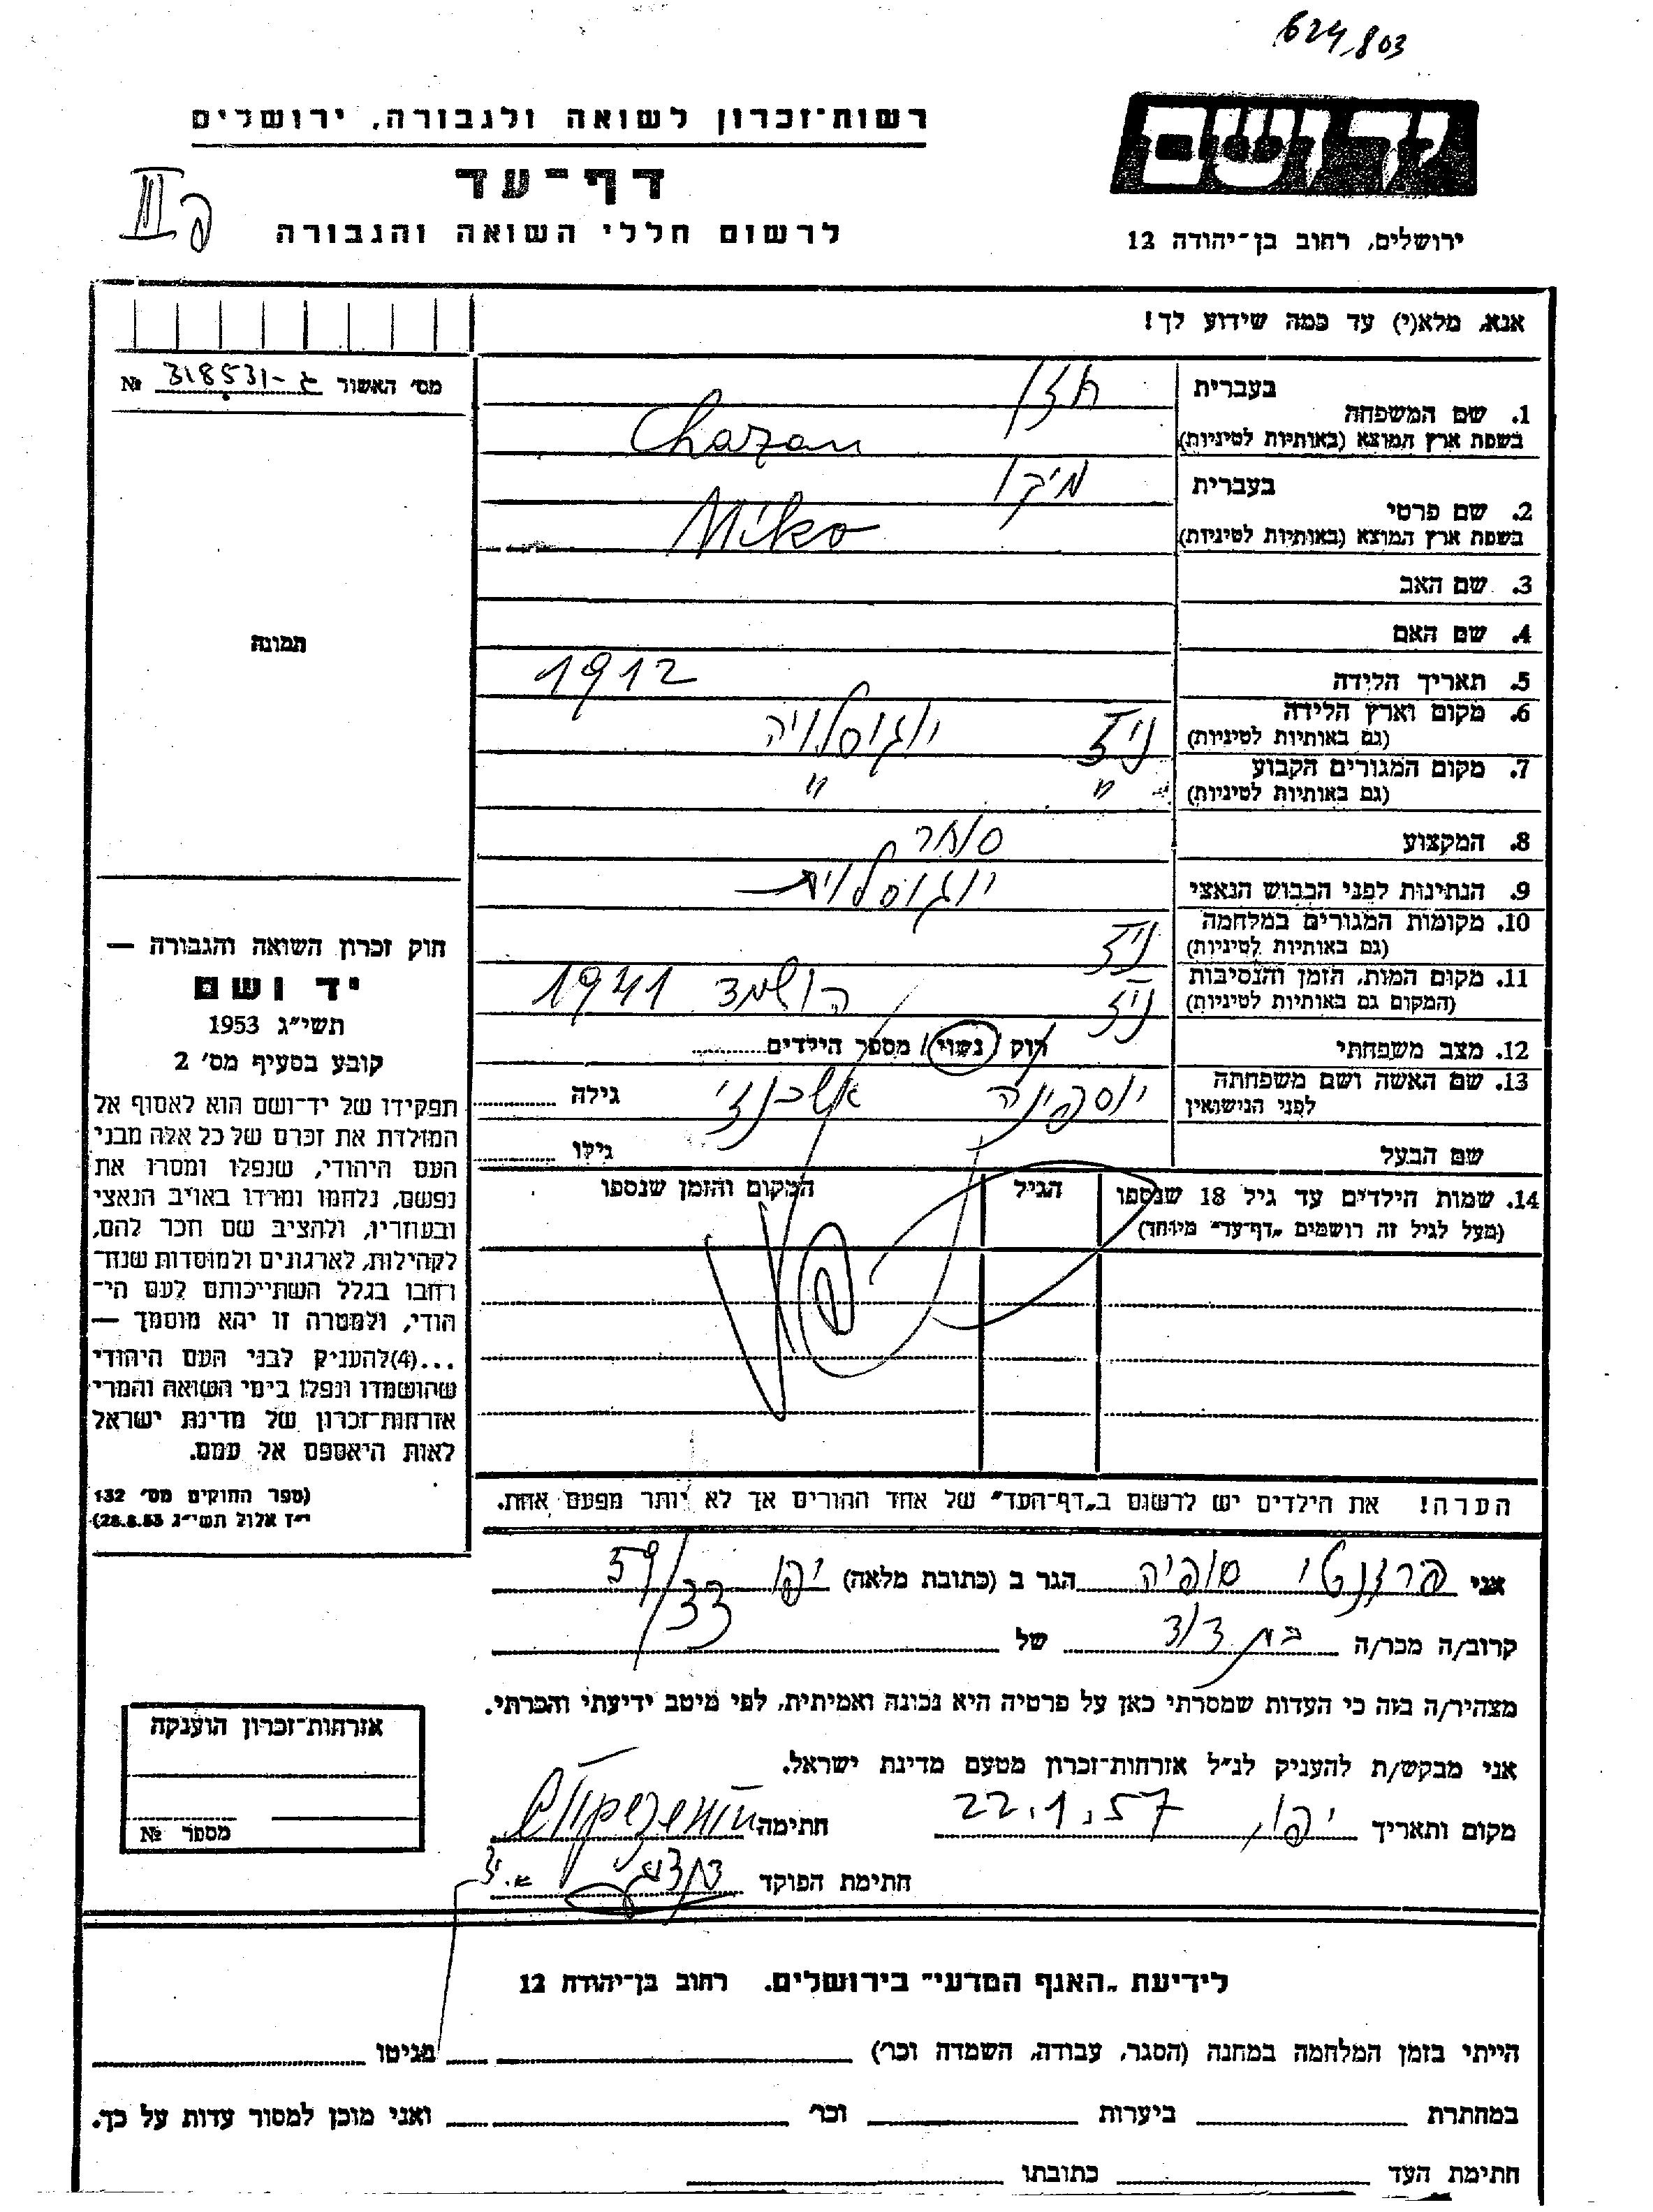 624,803
רשות־זכרון לשואה ולגבורה, ירושלים
יד ושם
דף־עד
לרשום חללי השואה והגבורה
ירושלים, רחוב בן־יהודה 12
אנא, מלא(י) עד כמה שידוע לך!
מס׳ האשור ג-318531 №
תמונה
בעברית חזן
1. שם המשפחה
בשפת ארץ המוצא (באותיות לטיניות) Chazan
בעברית מיקו
2. שם פרטי
בשפת ארץ המוצא (באותיות לטיניות) Miko
3. שם האב
4. שם האם
5. תאריך הלידה 1912
6. מקום וארץ הלידה ניז יוגוסלויה
(גם באותיות לטיניות)
7. מקום המגורים הקבוע " "
(גם באותיות לטיניות)
8. המקצוע סוחר
9. הנתינות לפני הכבוש הנאצי יוגוסלוית
10. מקומות המגורים במלחמה ניז
(גם באותיות לטיניות)
11. מקום המות, הזמן והנסיבות ניז הושמד 1941
(המקום גם באותיות לטיניות)
12. מצב משפחתי רווק / נשוי / מספר הילדים
13. שם האשה ושם משפחתה יוספינה אשכנזי גילה
לפני הנישואין
שם הבעל גילו
14. שמות הילדים עד גיל 18 שנספו הגיל המקום והזמן שנספו
(מעל לגיל זה רושמים „דף־עד" מיוחד)
חוק זכרון השואה והגבורה —
יד ושם
תשי״ג 1953
קובע בסעיף מס׳ 2
תפקידו של יד־ושם הוא לאסוף אל
המולדת את זכרם של כל אלה מבני
העם היהודי, שנפלו ומסרו את
נפשם, נלחמו ומרדו באויב הנאצי
ובעוזריו, ולהציב שם וזכר להם,
לקהילות, לארגונים ולמוסדות שנח־
רבו בגלל השתייכותם לעם הי־
הודי, ולמטרה זו יהא מוסמך —
...(4)להעניק לבני העם היהודי
שהושמדו ונפלו בימי השואה והמרי
אזרחות־זכרון של מדינת ישראל
לאות היאספם אל עמם.
(ספר החוקים מס׳ 132
י״ז אלול תשי״ג 28.8.53)
הערה! את הילדים יש לרשום ב„דף־העד" של אחד ההורים אך לא יותר מפעם אחת.
אני פרזנטי סופיה הגר ב (כתובת מלאה) יפו 59/33
קרוב/ה מכר/ה בת דוד של
מצהיר/ה בזה כי העדות שמסרתי כאן על פרטיה היא נכונה ואמיתית, לפי מיטב ידיעתי והכרתי.
אני מבקש/ת להעניק לנ״ל אזרחות־זכרון מטעם מדינת ישראל.
מקום ותאריך יפו, 22.1.57 חתימה
חתימת הפוקד
אזרחות־זכרון הוענקה
מספר №
לידיעת „האגף המדעי" בירושלים. רחוב בן־יהודה 12
הייתי בזמן המלחמה במחנה (הסגר, עבודה, השמדה וכר׳) בגיטו
במחתרת ביערות וכר׳ ואני מוכן למסור עדות על כך.
חתימת העד כתובתו